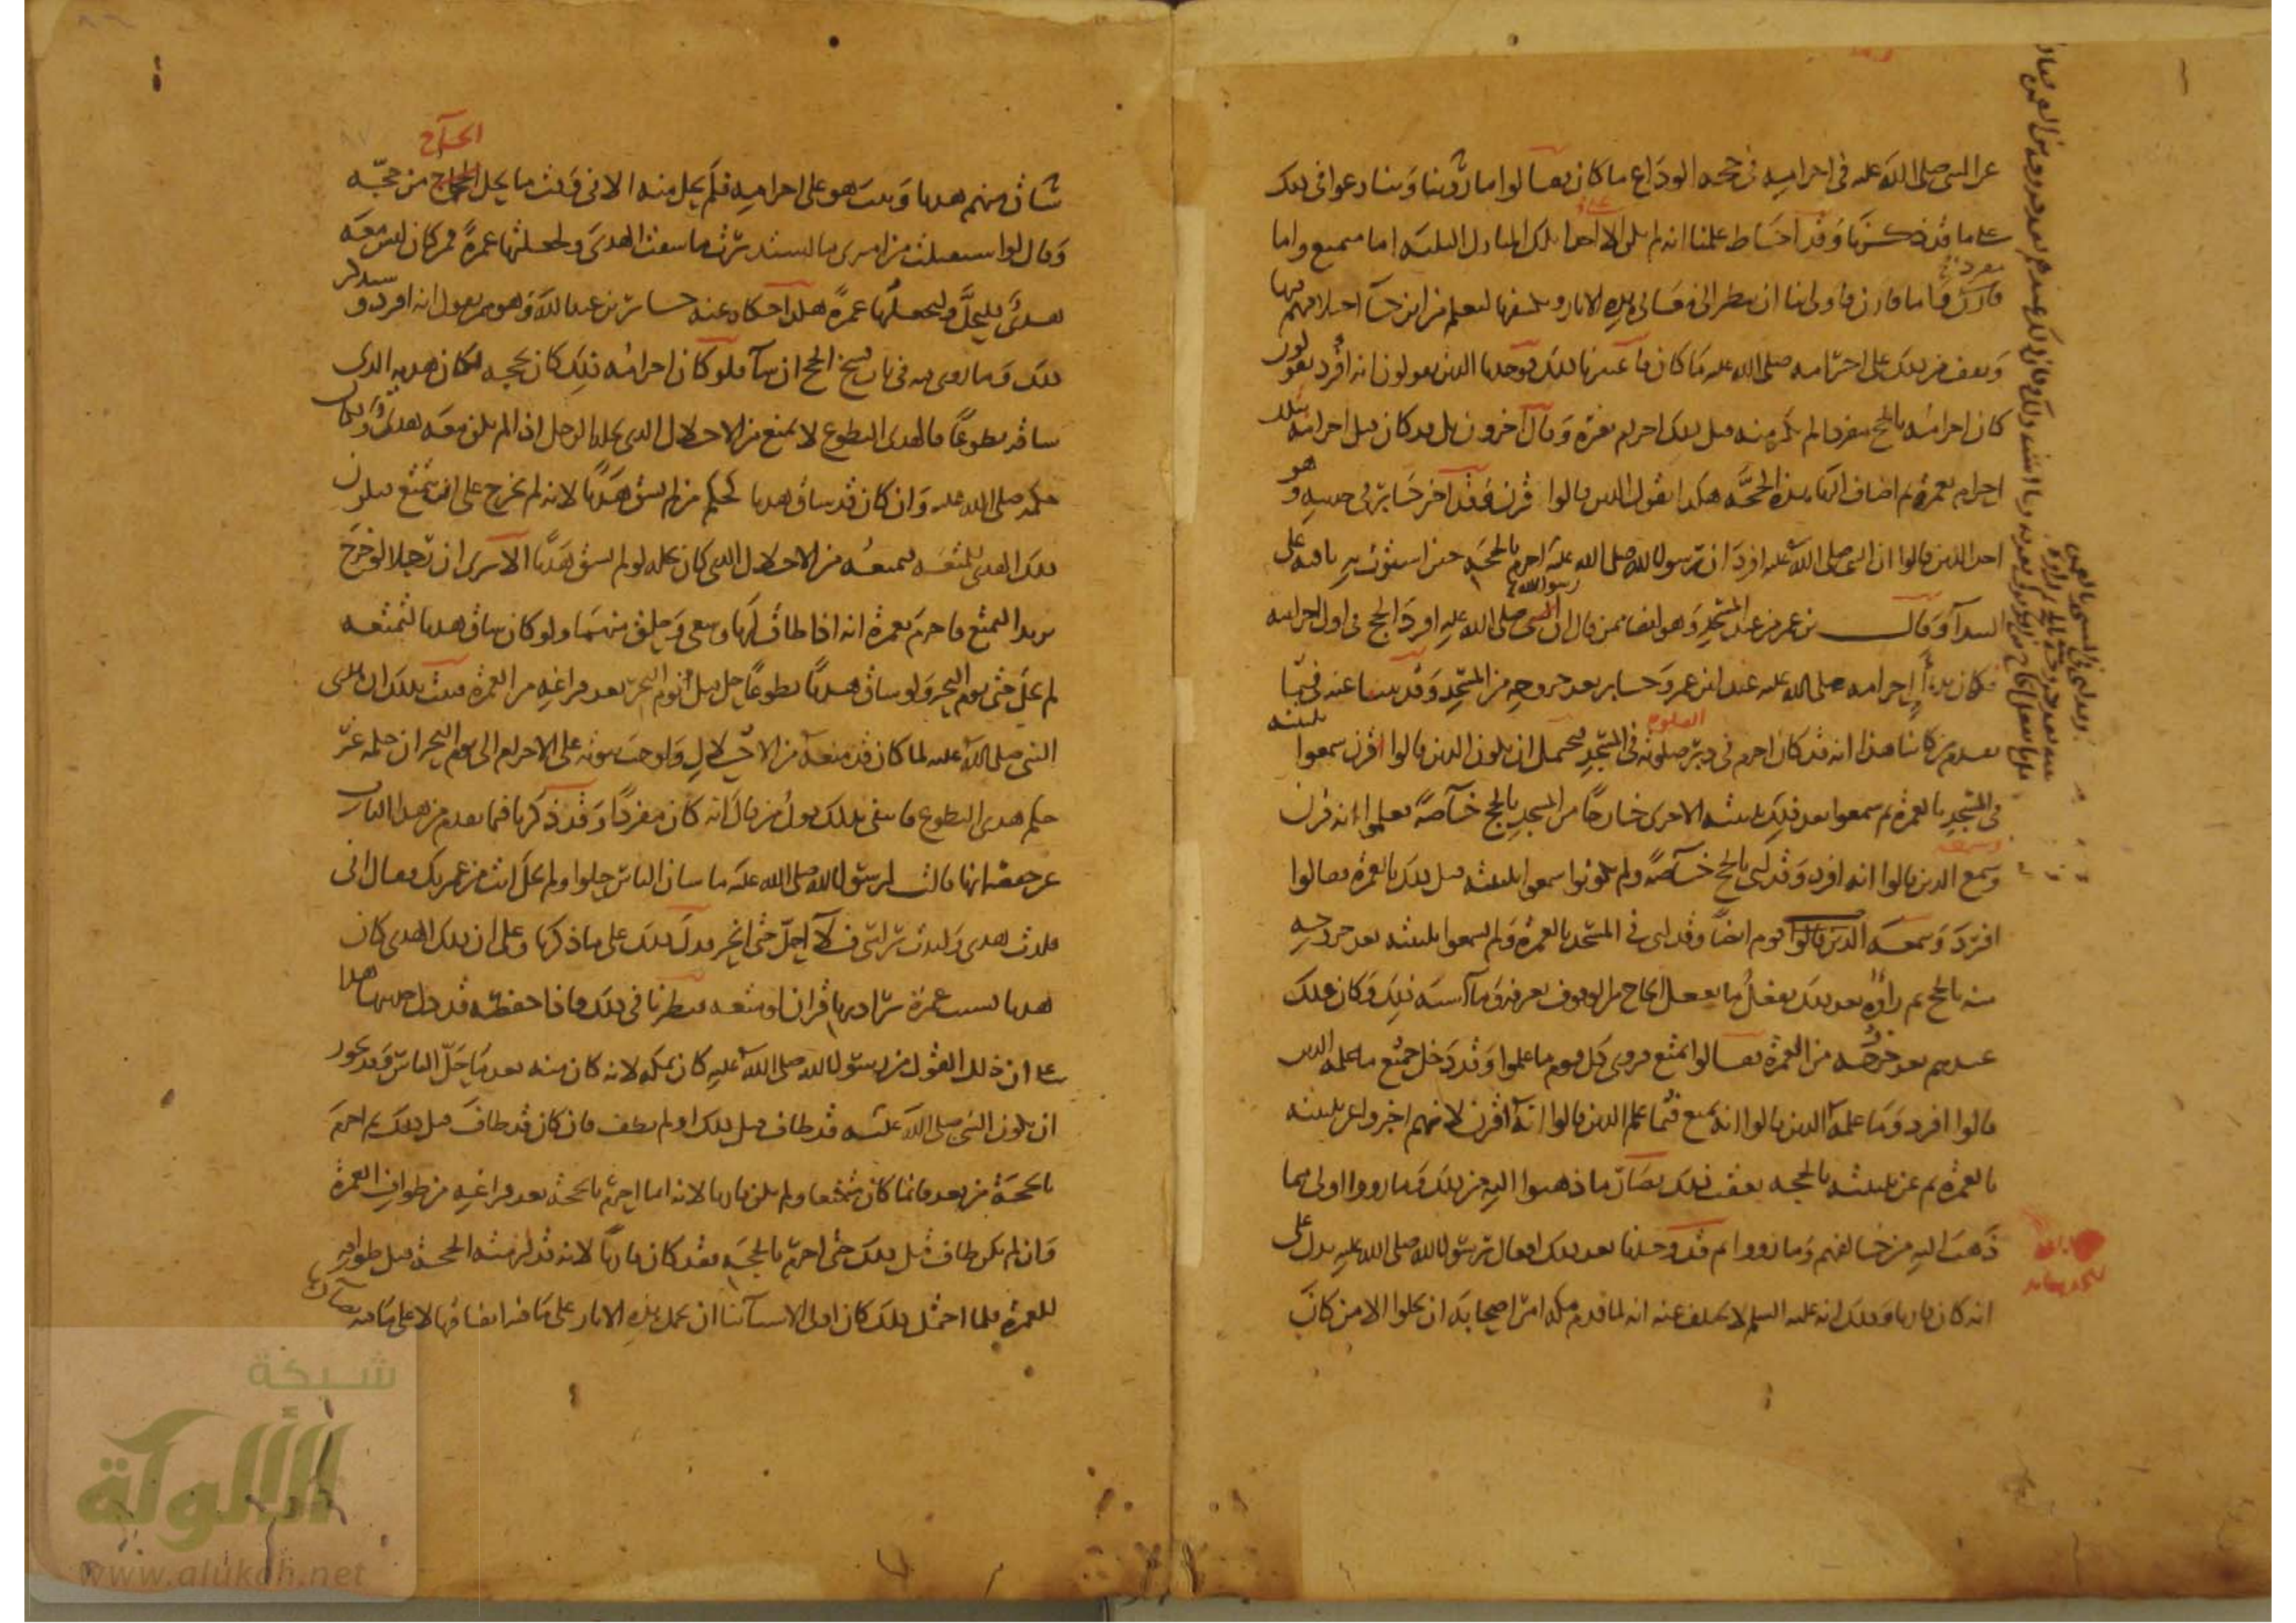 عن النبي صلى الله عليه في احرامه في حجة الوداع ما كان فقالوا ما روينا وتنازعوا في ذلك
على ما قد ذكرنا وقد احاط علمنا انه لم يكن الا احد تلك المنازل الثلثة اما متمتع واما
مفرد واما قارن فاولى بنا ان ننظر الى معاني هذه الاثار ونكشفها لنعلم من اين جا اختلافهم فيها
ونقف من ذلك على احرامه صلى الله عليه ما كان فاعتبرنا ذلك فوجدنا الذين يقولون انه افرد يقولون
كان احرامه بالحج مفردا لم يكن منه قبل ذلك احرام بغيره وقال اخرون بل قد كان قبل احرامه بتلك
احرام بعمرة ثم اضاف اليها هذه الحجة هكذا يقول الذين قالوا قرن وقد اخبر جابر في حديثه وهو
احد الذين قالوا ان النبي صلى الله عليه افرد ان رسول الله صلى الله عليه احرم بالحجة حين استوت به ناقته على
البيدآ وقال بن عمر من عند المسجد وهو ايضا ممن قال ان رسول الله صلى الله عليه افرد الحج في اول احرامه
فكان بدء احرامه صلى الله عليه عند ابن عمر وجابر بعد خروجه من المسجد وقد بينا عنه فيما
تقدم من كتابنا هذا انه قد كان احرم في دبر الصلوة في المسجد فيحتمل ان يكون الذين قالوا قرن سمعوا تلبيته
في المسجد بالعمرة ثم سمعوا بعد ذلك تلبيته الاخرى خارجا من المسجد بالحج خاصة فعلموا انه قرن
وسمع الذين قالوا انه افرد وقد لبى بالحج خاصة ولم يكونوا سمعوا تلبيته قبل ذلك بالعمرة فقالوا
افرد وسمعه قوم ايضا وقد لبى في المسجد بالعمرة ولم يسمعوا تلبيته بعد خروجه
منه بالحج ثم راوه بعد ذلك يفعل ما يفعل الحاج من الوقوف بعرفة وما اشبه ذلك وكان ذلك
عندهم بعد خروجه من العمرة فقالوا تمتع فروى كل قوم ما علموا وقد دخل جميع ما علمه الذين
قالوا افرد وما علمه الذين قالوا انه تمتع فيما علم الذين قالوا انه قرن لانهم اخبروا عن تلبيته
بالعمرة ثم عن تلبيته بالحجة بعقب ذلك فصار ما ذهبوا اليه من ذلك وما رووا اولى مما
ذهب اليه من خالفهم وما رووا ثم قد وجدنا بعد ذلك افعال رسول الله صلى الله عليه يدل على
انه كان قارنا وذلك انه عليه السلم لا يختلف عنه انه لما قدم مكة امر اصحابه ان يحلوا الا من كان
الحاج
ساق منهم هديا وثبت هو على احرامه فلم يحل منه الا في وقت ما يحل الحاج من حجه
وقال لو استقبلت من امري ما استدبرت ما سقت الهدي ولجعلتها عمرة فمن كان ليس معه
هدي فليحل وليجعلها عمرة هكذا حكاه عنه جابر بن عبد الله وهو ممن يقول انه افرد وسنذكر
ذلك وما روي فيه في باب فسخ الحج ان شآ فلو كان احرامه ذلك كان بحجه لكان هديه الذي
ساقه تطوعا فالهدي التطوع لا يمنع من الاحلال الذي يحله الرجل اذا لم يكن معه هدي ولكان
حكمه صلى الله عليه وان كان قد ساق هديا كحكم من لم يسق هديا لانه لم يخرج على ان يتمتع فيكون
ذلك الهدي للمتعة فيمنعه من الاحلال الذي كان يحله لو لم يسق هديا الا ترى ان رجلا لو خرج
يريد التمتع فاحرم بعمرة انه اذا طاف لها وسعى وحلق حل منها ولو كان ساق هديا لمتعته
لم يحل حتى يوم النحر ولو ساق هديا تطوعا حل قبل يوم النحر بعد فراغه من العمرة فثبت بذلك ان هدي
النبي صلى الله عليه لما كان قد منعه من الاحلال واوجب ثبوته على الاحرام الى يوم النحر ان حكمه غير
حكم هدي التطوع فانتفى بذلك قول من قال انه كان مفردا وقد ذكرنا فيما تقدم من هذا الباب
عن حفصة انها قالت لرسول الله صلى الله عليه ما شان الناس حلوا ولم تحل انت من عمرتك فقال اني
قلدت هديي ولبدت راسي فلا احل حتى انحر فدل ذلك على ما ذكرنا وعلى ان ذلك الهدي كان
هديا بسبب عمرة يراد بها قران او متعة فنظرنا في ذلك فاذا حفصة قد دل حديثها هذا
على ان ذلك القول من رسول الله صلى الله عليه كان بمكة لانه كان منه بعد ما حل الناس وقد يجوز
ان يكون النبي صلى الله عليه قد طاف قبل ذلك او لم يطف فان كان قد طاف قبل ذلك ثم احرم
بالحجة من بعد فانما كان متمتعا ولم يكن قارنا لانه انما احرم بالحجة بعد فراغه من طواف العمرة
وان لم يكن طاف قبل ذلك حتى احرم بالحجة فقد كان قارنا لانه قد لزمته الحجة قبل طوافه
للعمرة فلما احتمل ذلك كان اولى الاشيآ بنا ان نحمل هذه الاثار على ما فيه اتفاقها لا على ما فيه تضادها
شبكة
الألوكة
www.alukah.net